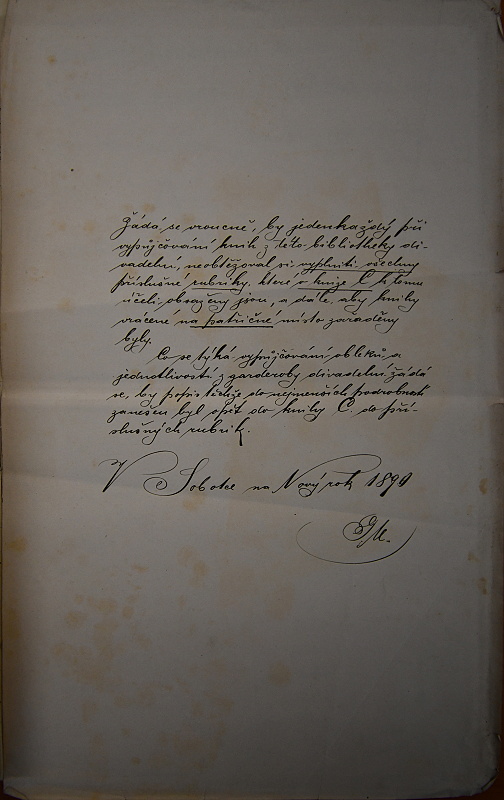 Žádá se vroucně, by jedenkaždý při
vypůjčování knih z této bibliotheky di-
vadelní, neobtěžoval si vyplniti všechny
příslušné rubriky, které v knize C k tomu
účeli obsaženy jsou, a dále, aby knihy
vrácené na patřičné místo zařaděny
byly.
Co se týká vypůjčování obleků a
jednotlivostí z garderoby divadelní žádá
se, by popis těchže do nejmenších podrobností
zanešen byl opět do knihy C. do pří-
slušných rubrik.
V Sobotce na Nový rok 1890